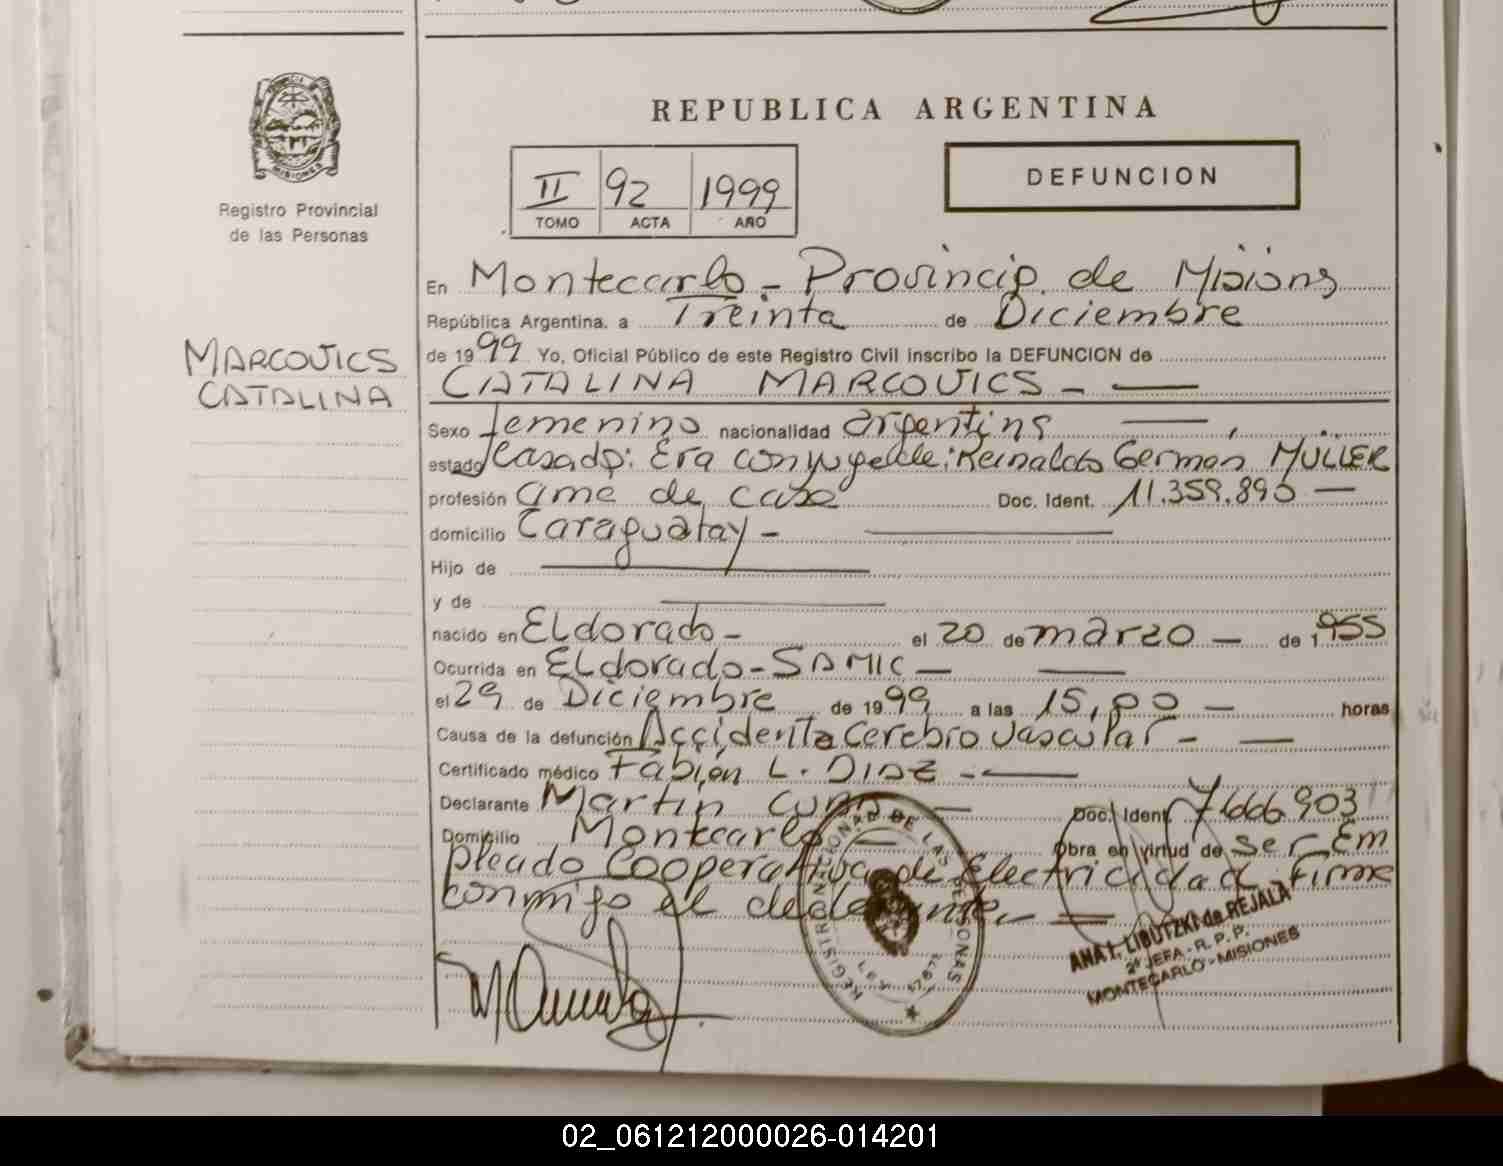 REPUBLICA ARGENTINA
DEFUNCION
MISIONES
Registro Provincial
de las Personas
II 92 1999
TOMO ACTA AÑO
En Montecarlo - Provincia de Misiones
República Argentina, a Treinta de Diciembre
MARCOVICS
CATALINA
de 1999 Yo, Oficial Público de este Registro Civil inscribo la DEFUNCION de
CATALINA MARCOVICS -
Sexo femenino nacionalidad argentina
estado Casada; Era conyuge de: Reinaldo German MÜLLER
profesión ama de casa Doc. Ident. 11.359.890 -
domicilio Caraguatay -
Hijo de
y de
nacido en Eldorado - el 20 de marzo - de 1955
Ocurrida en ELdorado - SAMIC -
el 29 de Diciembre de 1999 a las 15,00 - horas
Causa de la defunción Accidente Cerebro Vascular -
Certificado médico Fabián L. DIAZ -
Declarante Martin Doc. Ident. 7666903
Domicilio Montecarlo - Obra en virtud de ser Em
pleado Cooperativa de Electricidad. Firma
conmigo el declarante. -
REGISTRO NACIONAL DE LAS PERSONAS
ANA I. LIBUTZKI de REJALA
2ª JEFA - R. P. P.
MONTECARLO - MISIONES
02_061212000026-014201